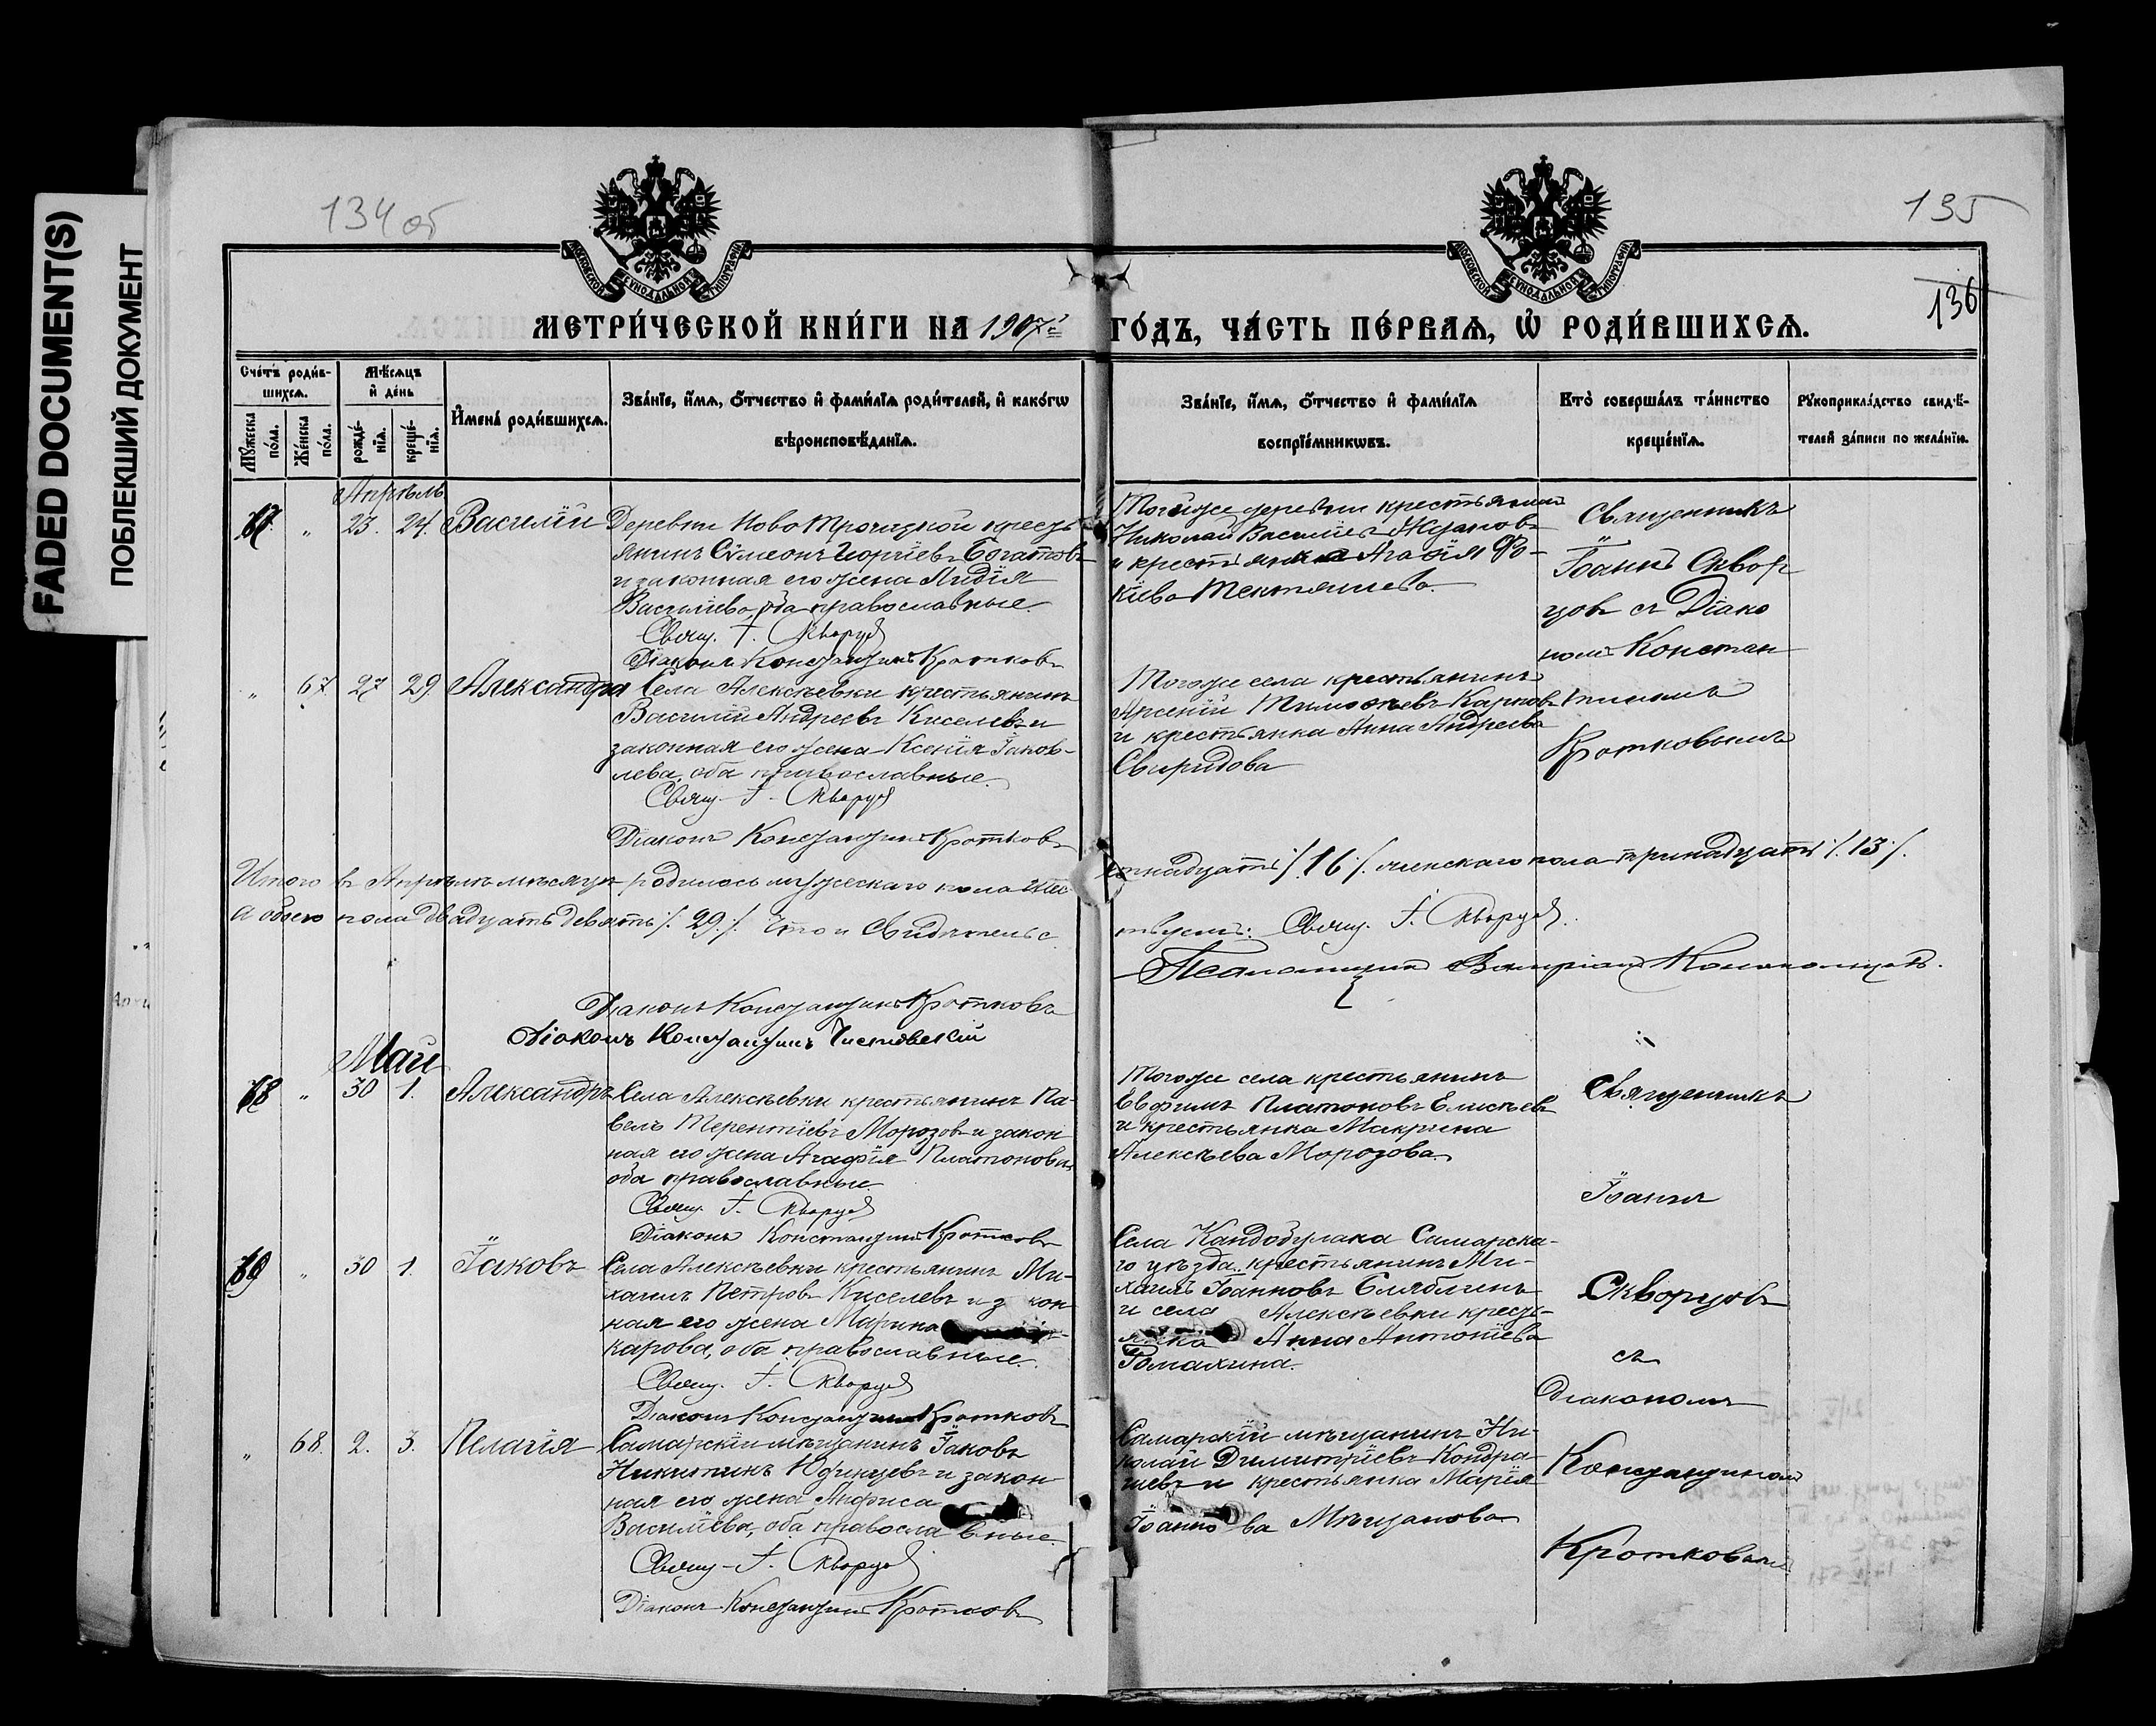 FADED DOCUMENT(S)
ПОБЛЕКШИЙ ДОКУМЕНТ
134 об
135
136
МОСКОВСКОЙ СѴНОДАЛЬНОЙ ТИПОГРАФІИ
МОСКОВСКОЙ СѴНОДАЛЬНОЙ ТИПОГРАФІИ
МЕТРИ́ЧЕСКОЙ КНИ́ГИ НА 1907й ГО́ДЪ, ЧА́СТЬ ПЕ́РВАѦ, Ѡ РОДИ́ВШИХСѦ.
Сче́тъ роди́в-
шихсѧ.
Мꙋ́жеска по́ла.
Же́нска по́ла.
Мѣ́сѧцъ
и҆ де́нь
рожде́-нїѧ.
креще́-нїѧ.
И҆мена̀ роди́вшихсѧ.
Зва́нїе, и҆́мѧ, ѻ҆́тчество и҆ фами́лїѧ роди́телей, и҆ како́гѡ
вѣроисповѣ́данїѧ.
Зва́нїе, и҆́мѧ, ѻ҆́тчество и҆ фами́лїѧ
воспрїе́мникѡвъ.
Кто̀ соверша́лъ та́инство
креще́нїѧ.
Рꙋкоприкла́дство свидѣ́-
телей за́писи по жела́нїю.
Апрѣль
67. " 23. 24. Василій
Деревни Ново Троицкой кресть
янинъ Сѵмеонъ Георгіевъ Богатовъ
и законная его жена Лидія
Василіева, оба православные
Свящ. І. Скворцов
Діаконъ Константинъ Кротковъ
Тойже деревни крестьянин
Николай Василіевъ Ждановъ
и крестьянка Агафія Фо-
кіева
Священникъ
Іоаннъ Сквор
цовъ съ Діако
номъ Констан
тиномъ
Кротковымъ
" 67 27 29 Александра
Села Алексѣевки крестьянинъ
Василій Андреевъ Киселевъ и
законная его жена Ксенія Іаков-
лева, оба православные.
Свящ. І. Скворцов
Діаконъ Константинъ Кротковъ
Тогоже села крестьянинъ
Арсеній Тимофѣевъ Карповъ
и крестьянка Анна Андреева
Свиридова
Итого въ Апрѣлѣ мѣсяцѣ родилось мужескаго пола шес
тнадцать /. 16 /. женскаго пола тринадцать /. 13 /.
А обоего пола двадцать девять /. 29. /. Что и свидѣтельс
твуемъ: Свящ. І. Скворцов.
Псаломщикъ Валеріанъ
Діаконъ Константинъ Кротковъ
Діаконъ Константинъ
Май
68 " 30 1. Александръ
Села Алексѣевки крестьянинъ Па-
велъ Терентіевъ Морозовъ и закон
ная его жена Агафія Платонова,
оба православные
Свящ. І. Скворцов
Діаконъ Константинъ Кротковъ
Тогоже села крестьянинъ
Евфимъ Платоновъ Елисѣевъ
и крестьянка Макрина
Алексѣева Морозова
Священникъ
Іоаннъ
Скворцовъ
съ
Діакономъ
Константином
Кротковымъ
69 " 30 1. Іаковъ
Села Алексѣевки крестьянинъ Ми-
хаилъ Петровъ Киселевъ и з кон-
ная его жена Марина
карова, оба православные.
Свящ. І. Скворцов
Діаконъ Константинъ Кротковъ
Села Кандабулака Самарска-
го уѣзда крестьянинъ Ми-
хаилъ Іоанновъ
и села Алексѣевки кресть-
янка Анна Антоніева
" 68. 2. 3. Пелагія
Самарскій мѣщанинъ Іаковъ
Никитинъ и закон
ная его жена Анфиса
Василіева, оба правосла вные.
Свящ. І. Скворцов
Діаконъ Константинъ Кротковъ
Самарскій мѣщанинъ Ни-
колай Димитріевъ Кондра-
шевъ и крестьянка Марія
Іоанно ва Мѣщанова